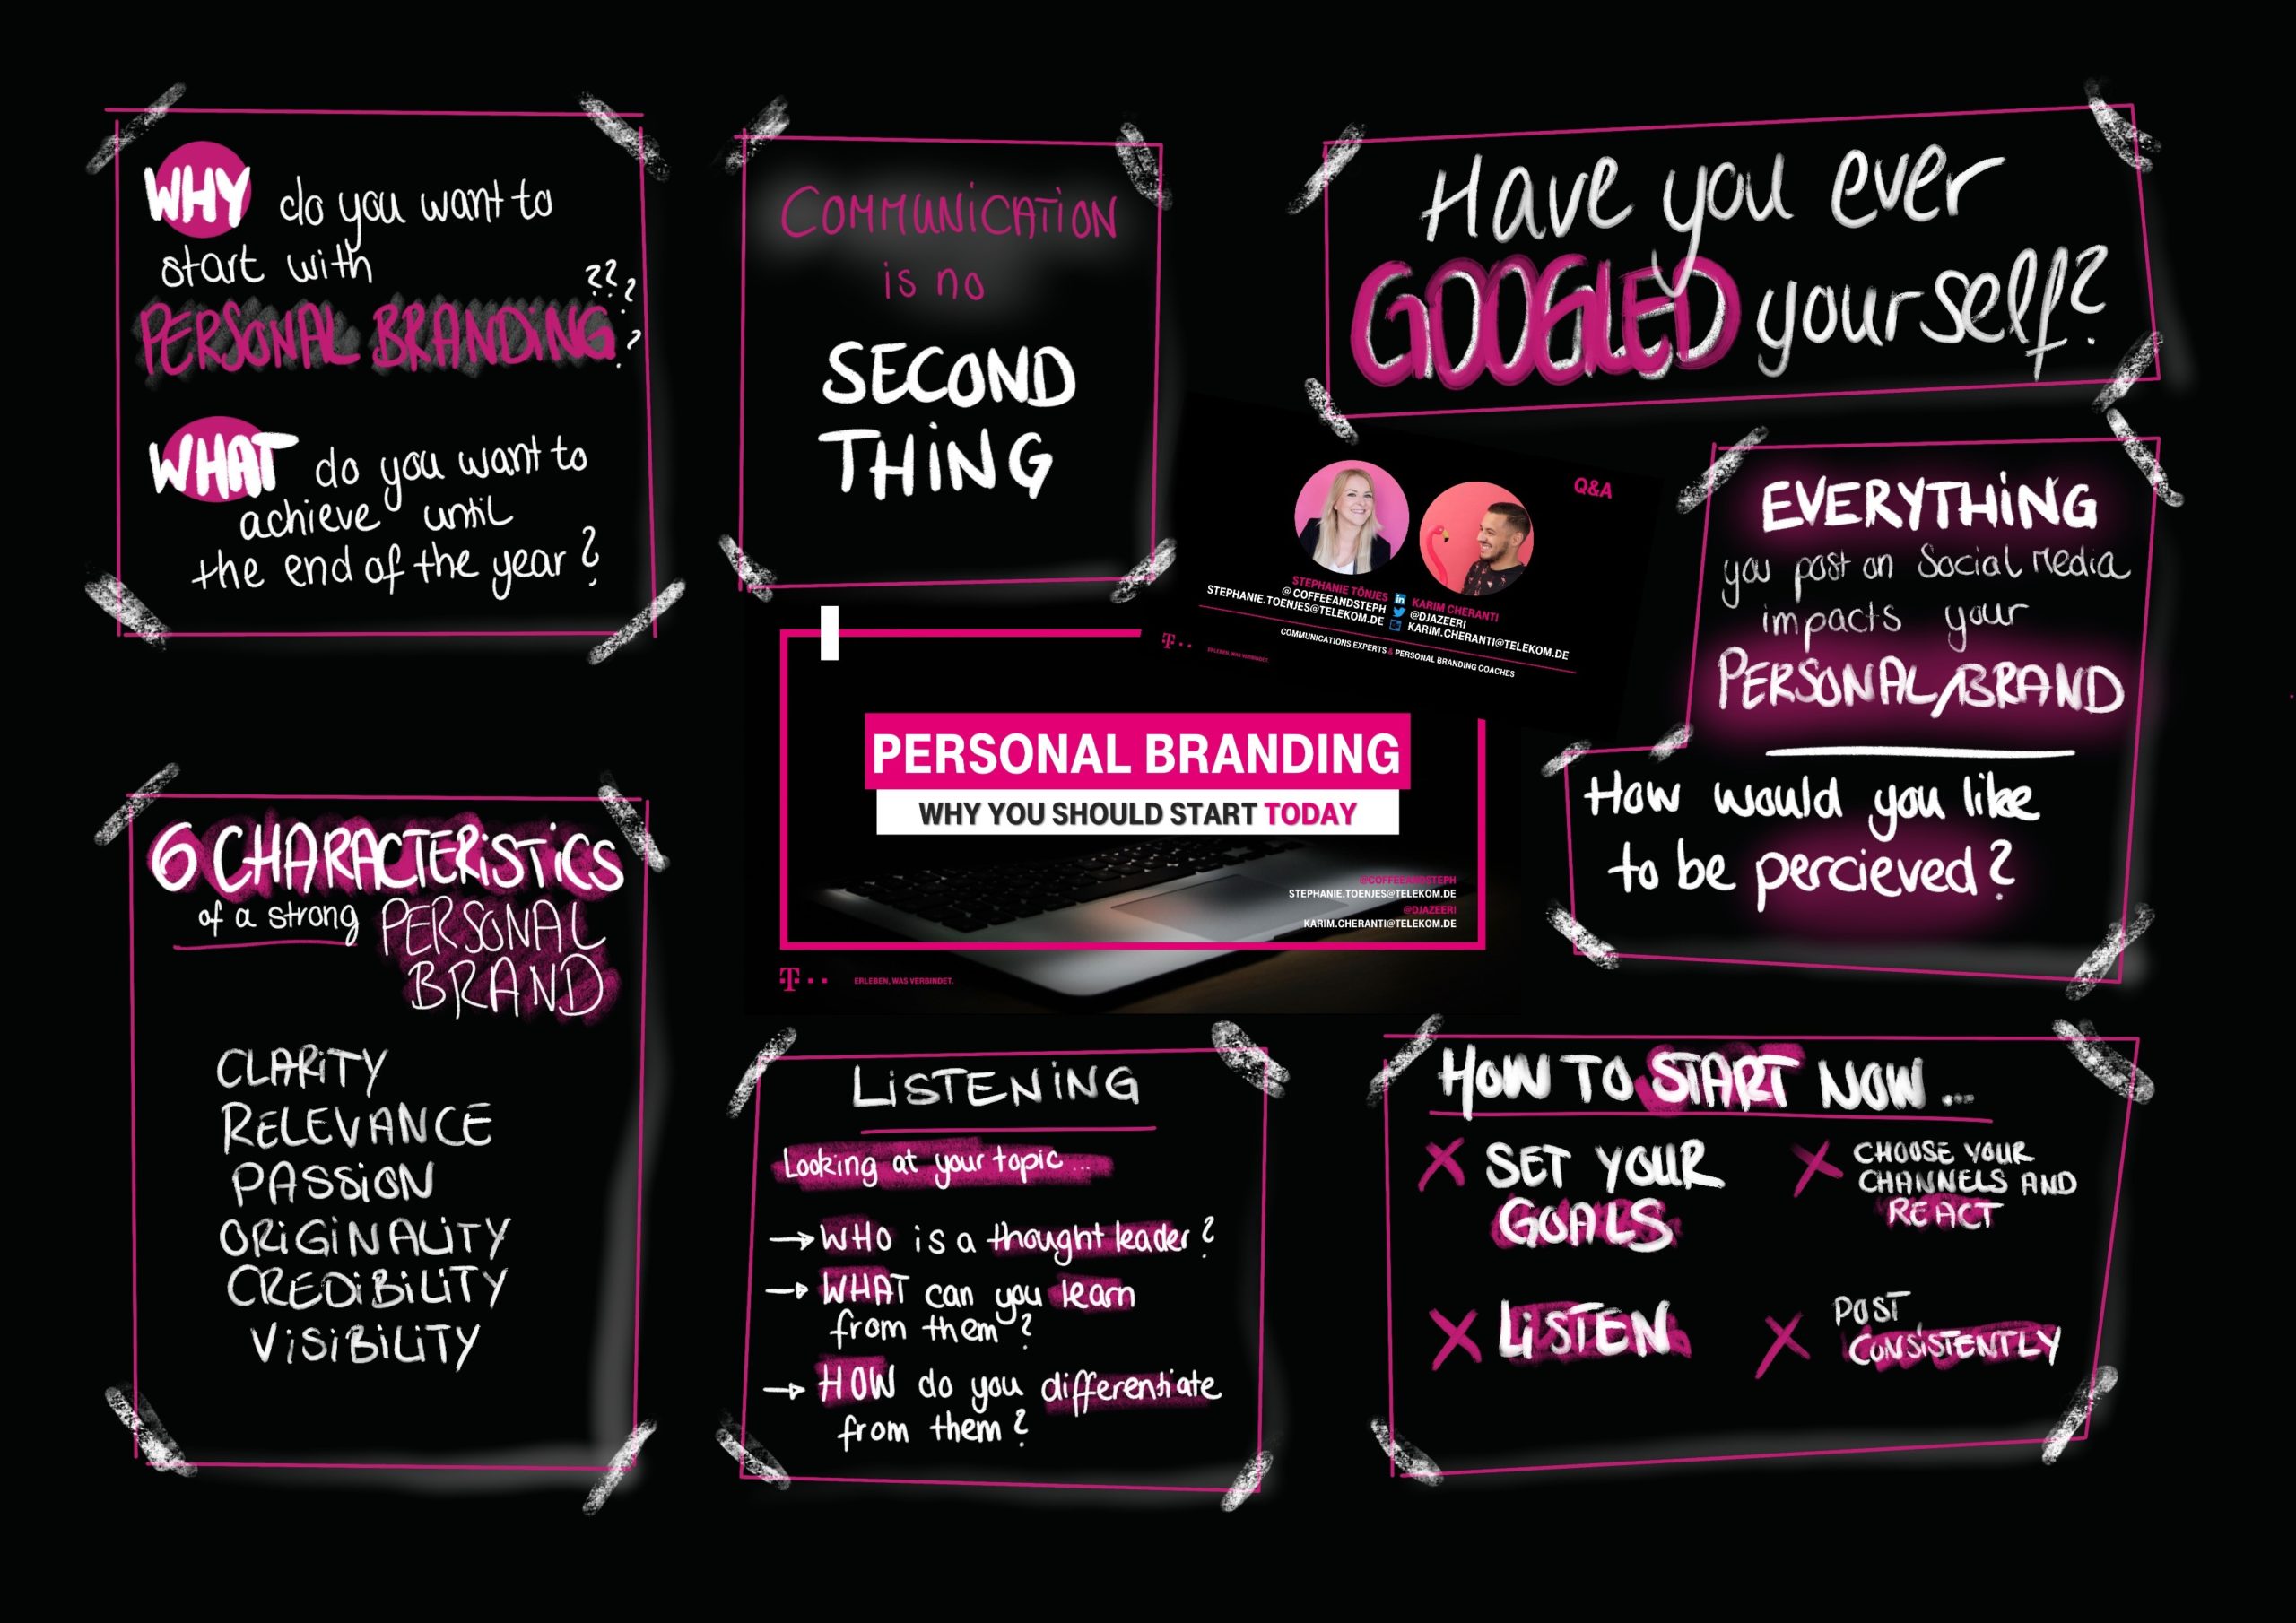 WHY do you want to
start with
???
PERSONAL BRANDING?
WHAT do you want to
achieve until
the end of the year?
COMMUNiCATiON
is no
SECOND
THiNG
Have you ever
GOOGLED yourself?
Q&A
STEPHANIE TÖNJES
@COFFEEANDSTEPH
STEPHANIE.TOENJES@TELEKOM.DE
in
KARIM CHERANTI
@DJAZEERI
KARIM.CHERANTI@TELEKOM.DE
COMMUNICATIONS EXPERTS & PERSONAL BRANDING COACHES
T
ERLEBEN, WAS VERBINDET.
EVERYTHiNG
you post on Social Media
impacts your
PERSONAL/BRAND
How would you like
to be percieved?
PERSONAL BRANDING
WHY YOU SHOULD START TODAY
@COFFEEANDSTEPH
STEPHANIE.TOENJES@TELEKOM.DE
@DJAZEERI
KARIM.CHERANTI@TELEKOM.DE
T
ERLEBEN, WAS VERBINDET.
6 CHARACTERiSTiCS
of a strong PERSONAL
BRAND
CLARiTY
RELEVANCE
PASSiON
ORiGiNALiTY
CREDiBiLiTY
ViSiBiLiTY
LiSTENiNG
Looking at your topic...
→ WHO is a thought leader?
→ WHAT can you learn
from them?
→ HOW do you differentiate
from them?
HOW TO START NOW...
X SET YOUR
GOALS
X CHOOSE YOUR
CHANNELS AND
REACT
X LiSTEN
X POST
CONSiSTENTLY